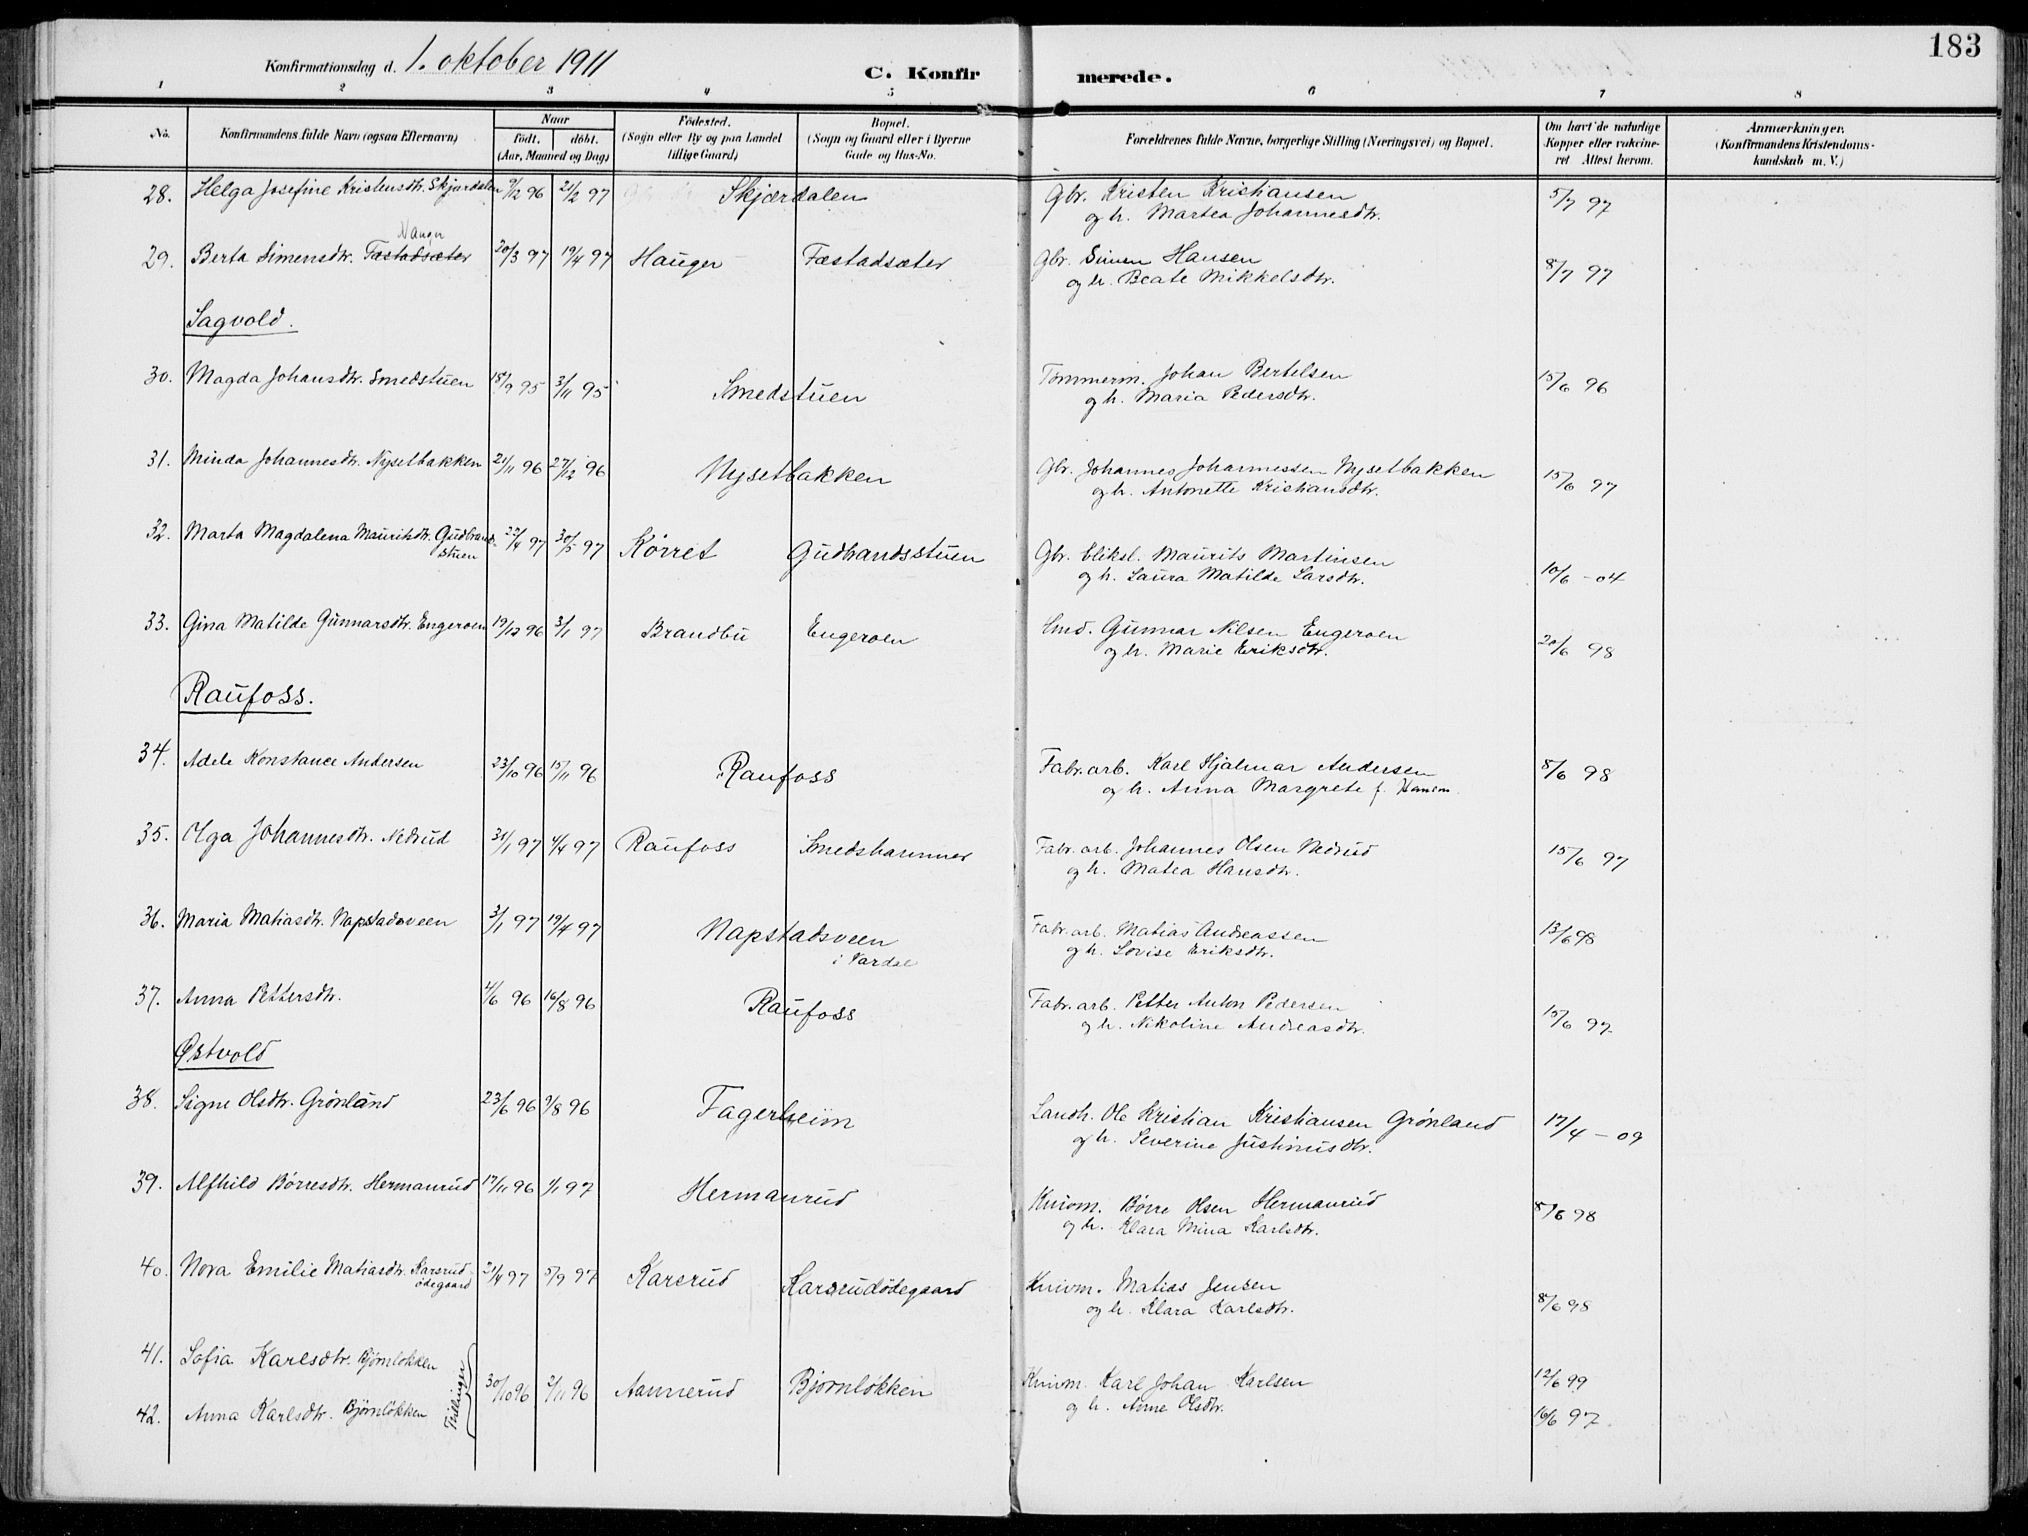 183
Konfirmationsdag d. 1. oktober 1911
C. Konfirmerede.
1 2 3 4 5 6 7 8
No.
Konfirmandens fulde Navn (ogsaa Efternavn)
Naar
født. døbt.
(Aar, Maaned og Dag)
Fødested.
(Sogn eller By og paa Landet
tillige Gaard)
Bopæl.
(Sogn og Gaard eller i Byerne
Gade og Hus-No.
Forældrenes fulde Navne, borgerlige Stilling (Næringsvei) og Bopæl.
Om havt de naturlige
Kopper eller vaccine-
ret Attest herom.
Anmærkninger.
(Konfirmandens Kristendoms-
kundskab m. V.)
28. Helga Josefine Kristensdtr. Skjærdalen 9/12 96 21/2 97 Skjærdalen Gbr. Kristen Kristiansen 5/7 97
og h. Martea Johannesdtr.
Hauger
29. Berta Simensdtr. Fæstadsæter 30/3 97 19/4 97 Hauger Fæstadsæter Gbr. Simen Hansen 8/7 97
og h. Beate Mikkelsdtr.
Sagvold.
30. Magda Johansdtr. Smedstuen 18/9 95 3/11 95 Smedstuen Tømmerm. Johan Bertelsen 15/6 96
og h. Maria Pedersdtr.
31. Minda Johannesdtr. Nysetbakken 21/11 96 27/12 96 Nysetbakken Gbr. Johannes Johannessen Nysetbakken 15/6 97
og h. Antonette Kristiansdtr.
32. Marta Magdalena Mauritsdtr. Gudbrands-
stuen 27/4 97 30/5 97 Kørret Gudbandsstuen Gbr. Maurits Martinsen 10/6 - 04
og h. Laura Matilde Larsdtr.
33. Gina Matilde Gunnarsdtr. Engeroen 19/12 96 3/1 97 Brandbu Engeroen Smd. Gunnar Nilsen Engeroen 20/6 98
og h. Marie Eriksdtr.
Raufoss.
34. Adele Konstance Andersen 23/10 96 15/11 96 Raufoss Fabr.arb. Karl Hjalmar Andersen 8/6 98
og h. Anna Margrete f. Hansen
35. Olga Johannesdtr. Nedrud 31/1 97 4/4 97 Raufoss Smedshammer Fabr.arb. Johannes Olsen Nedrud 15/6 97
og h. Matea Hansdtr.
36. Maria Matiasdtr. Napstadsveen 3/1 97 19/4 97 Napstadsveen Fabr.arb. Matias Andreassen 13/6 98
i Vardal og h. Lovise Eriksdtr.
37. Anna Pettersdtr. 4/6 96 16/8 96 Raufoss Fabr.arb. Petter Anton Pedersen 15/6 97
og h. Nikoline Andreasdtr.
Østvold
38. Signe Olsdtr. Grønland 23/6 96 9/8 96 Fagerheim Landh. Ole Kristian Kristiansen Grønland 17/4 - 09
og h. Severine Justinusdtr.
39. Alfhild Børresdtr. Hermanrud 17/11 96 1/1 97 Hermanrud Knivm. Børre Olsen Hermanrud 8/6 98
og h. Klara Mina Karlsdtr.
40. Nora Emilie Matiasdtr. Karsrud-
ødegaard 21/4 97 5/9 97 Karsrud Karsrudødegaard Knivm. Matias Jensen 8/6 98
og h. Klara Karlsdtr.
41. Sofia Karlsdtr. Bjørnløkken
Tvillinger 30/10 96 2/11 96 Aannerud Bjørnløkken Knivm. Karl Johan Karlsen 12/6 99
42. Anna Karlsdtr. Bjørnløkken og h. Anne Olsdtr. 16/6 97